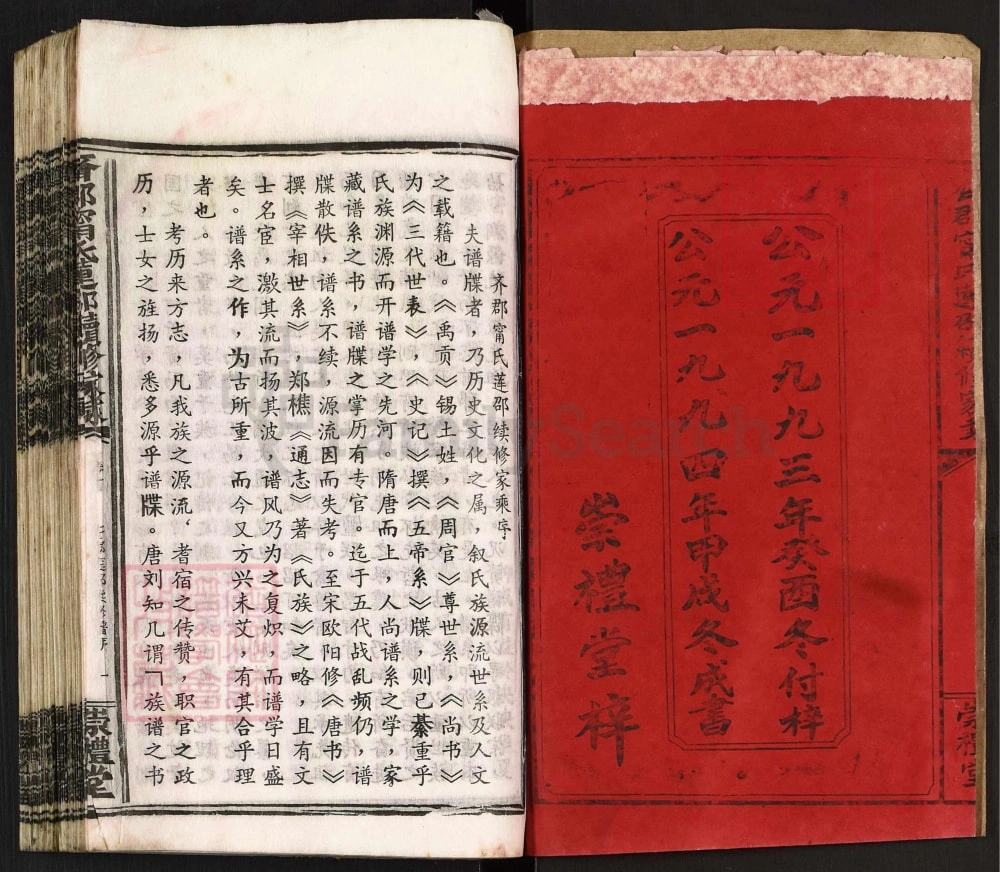 公元一九九三年癸酉冬付梓
公元一九九四年甲戌冬成書
崇禮堂梓
崇禮堂
齐郡甯氏莲邵续修家乘序
夫谱牒者，乃历史文化之属，叙氏族源流世系及人文
之载籍也。《禹贡》锡土姓，《周官》尊世系，《尚书》
为《三代世表》，《史记》撰《五帝系》牒，则已綦重乎
氏族渊源而开谱学之先河。隋唐而上，人尚谱系之学，家
藏谱系之书，谱牒之掌历有专官。迄于五代战乱频仍，谱
牒散佚，谱系不续，源流因而失考。至宋欧阳修《唐书》
撰《宰相世系》，郑樵《通志》著《氏族》之略，且有文
士名宦，激其流而扬其波，谱风乃为之复炽，而谱学日盛
矣。谱系之作，为古所重，而今又方兴未艾，有其合乎理
者也。
考历来方志，凡我族之源流，耆宿之传赞，职官之政
历，士女之旌扬，悉多源乎谱牒。唐刘知几谓「族谱之书
齊郡甯氏蓮邵續修家乘
一
崇禮堂